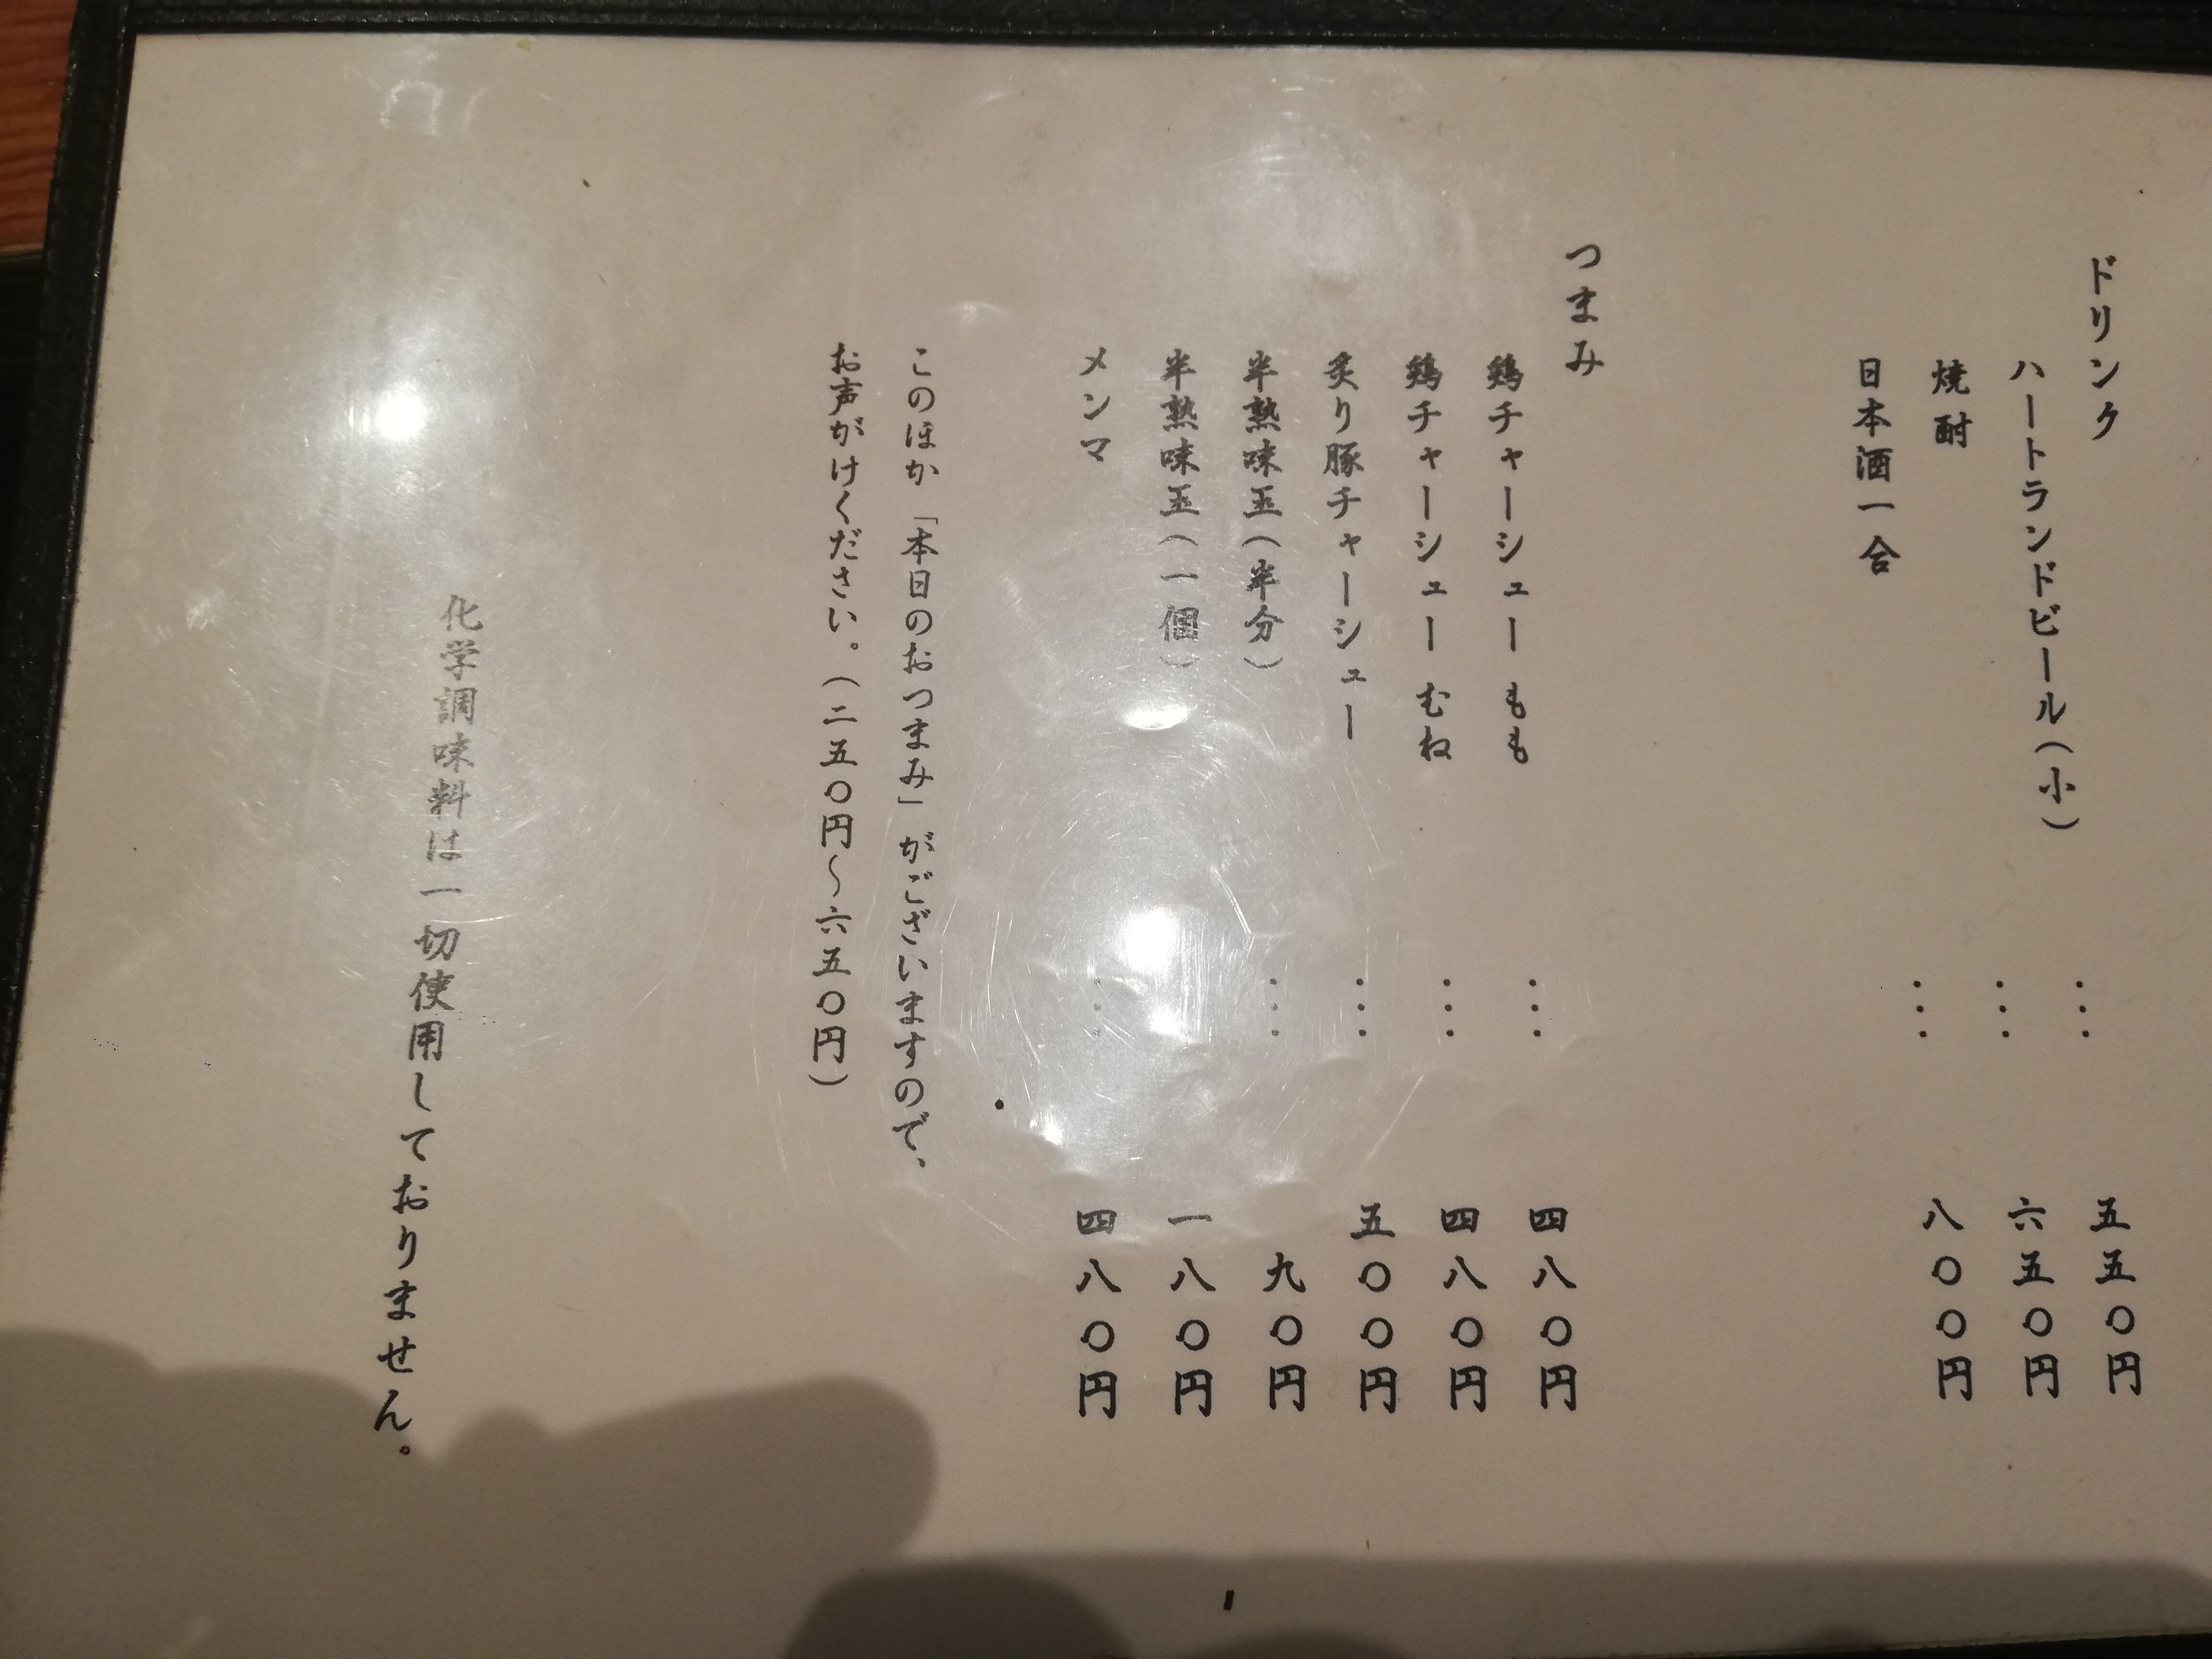 ドリンク
ハートランドビール(小) … 五五〇円
焼酎 … 六五〇円
日本酒一合 … 八〇〇円
つまみ
鶏チャーシュー もも … 四八〇円
鶏チャーシュー むね … 四八〇円
炙り豚チャーシュー … 五〇〇円
半熟味玉(半分) … 九〇円
半熟味玉(一個) 一八〇円
メンマ … 四八〇円
このほか「本日のおつまみ」がございますので、
お声がけください。(二五〇円〜六五〇円)
化学調味料は一切使用しておりません。